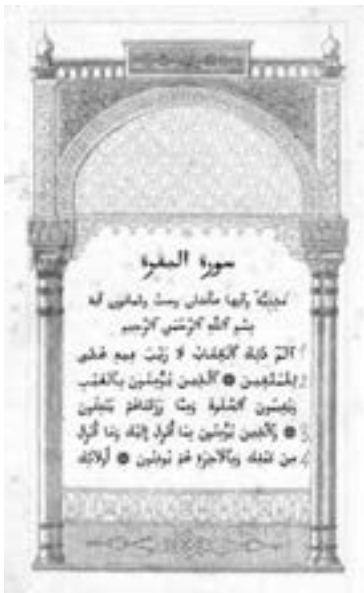 سورة البقرة
مدنيّة وآيها مائتان وست وثمانون آية
بسم الله الرّحمن الرّحيم
١ الٓمّ ذٰلك الكتاب لا ريب فيه هدى
٢ للمتّقين ۞ الّذين يؤمنون بالغيب
ويقيمون الصّلوة وممّا رزقناهم ينفقون
٣ ۞ والّذين يؤمنون بما أُنزل إليك وما أُنزل
٤ من قبلك وبالآخرة هم يوقنون ۞ أولائك